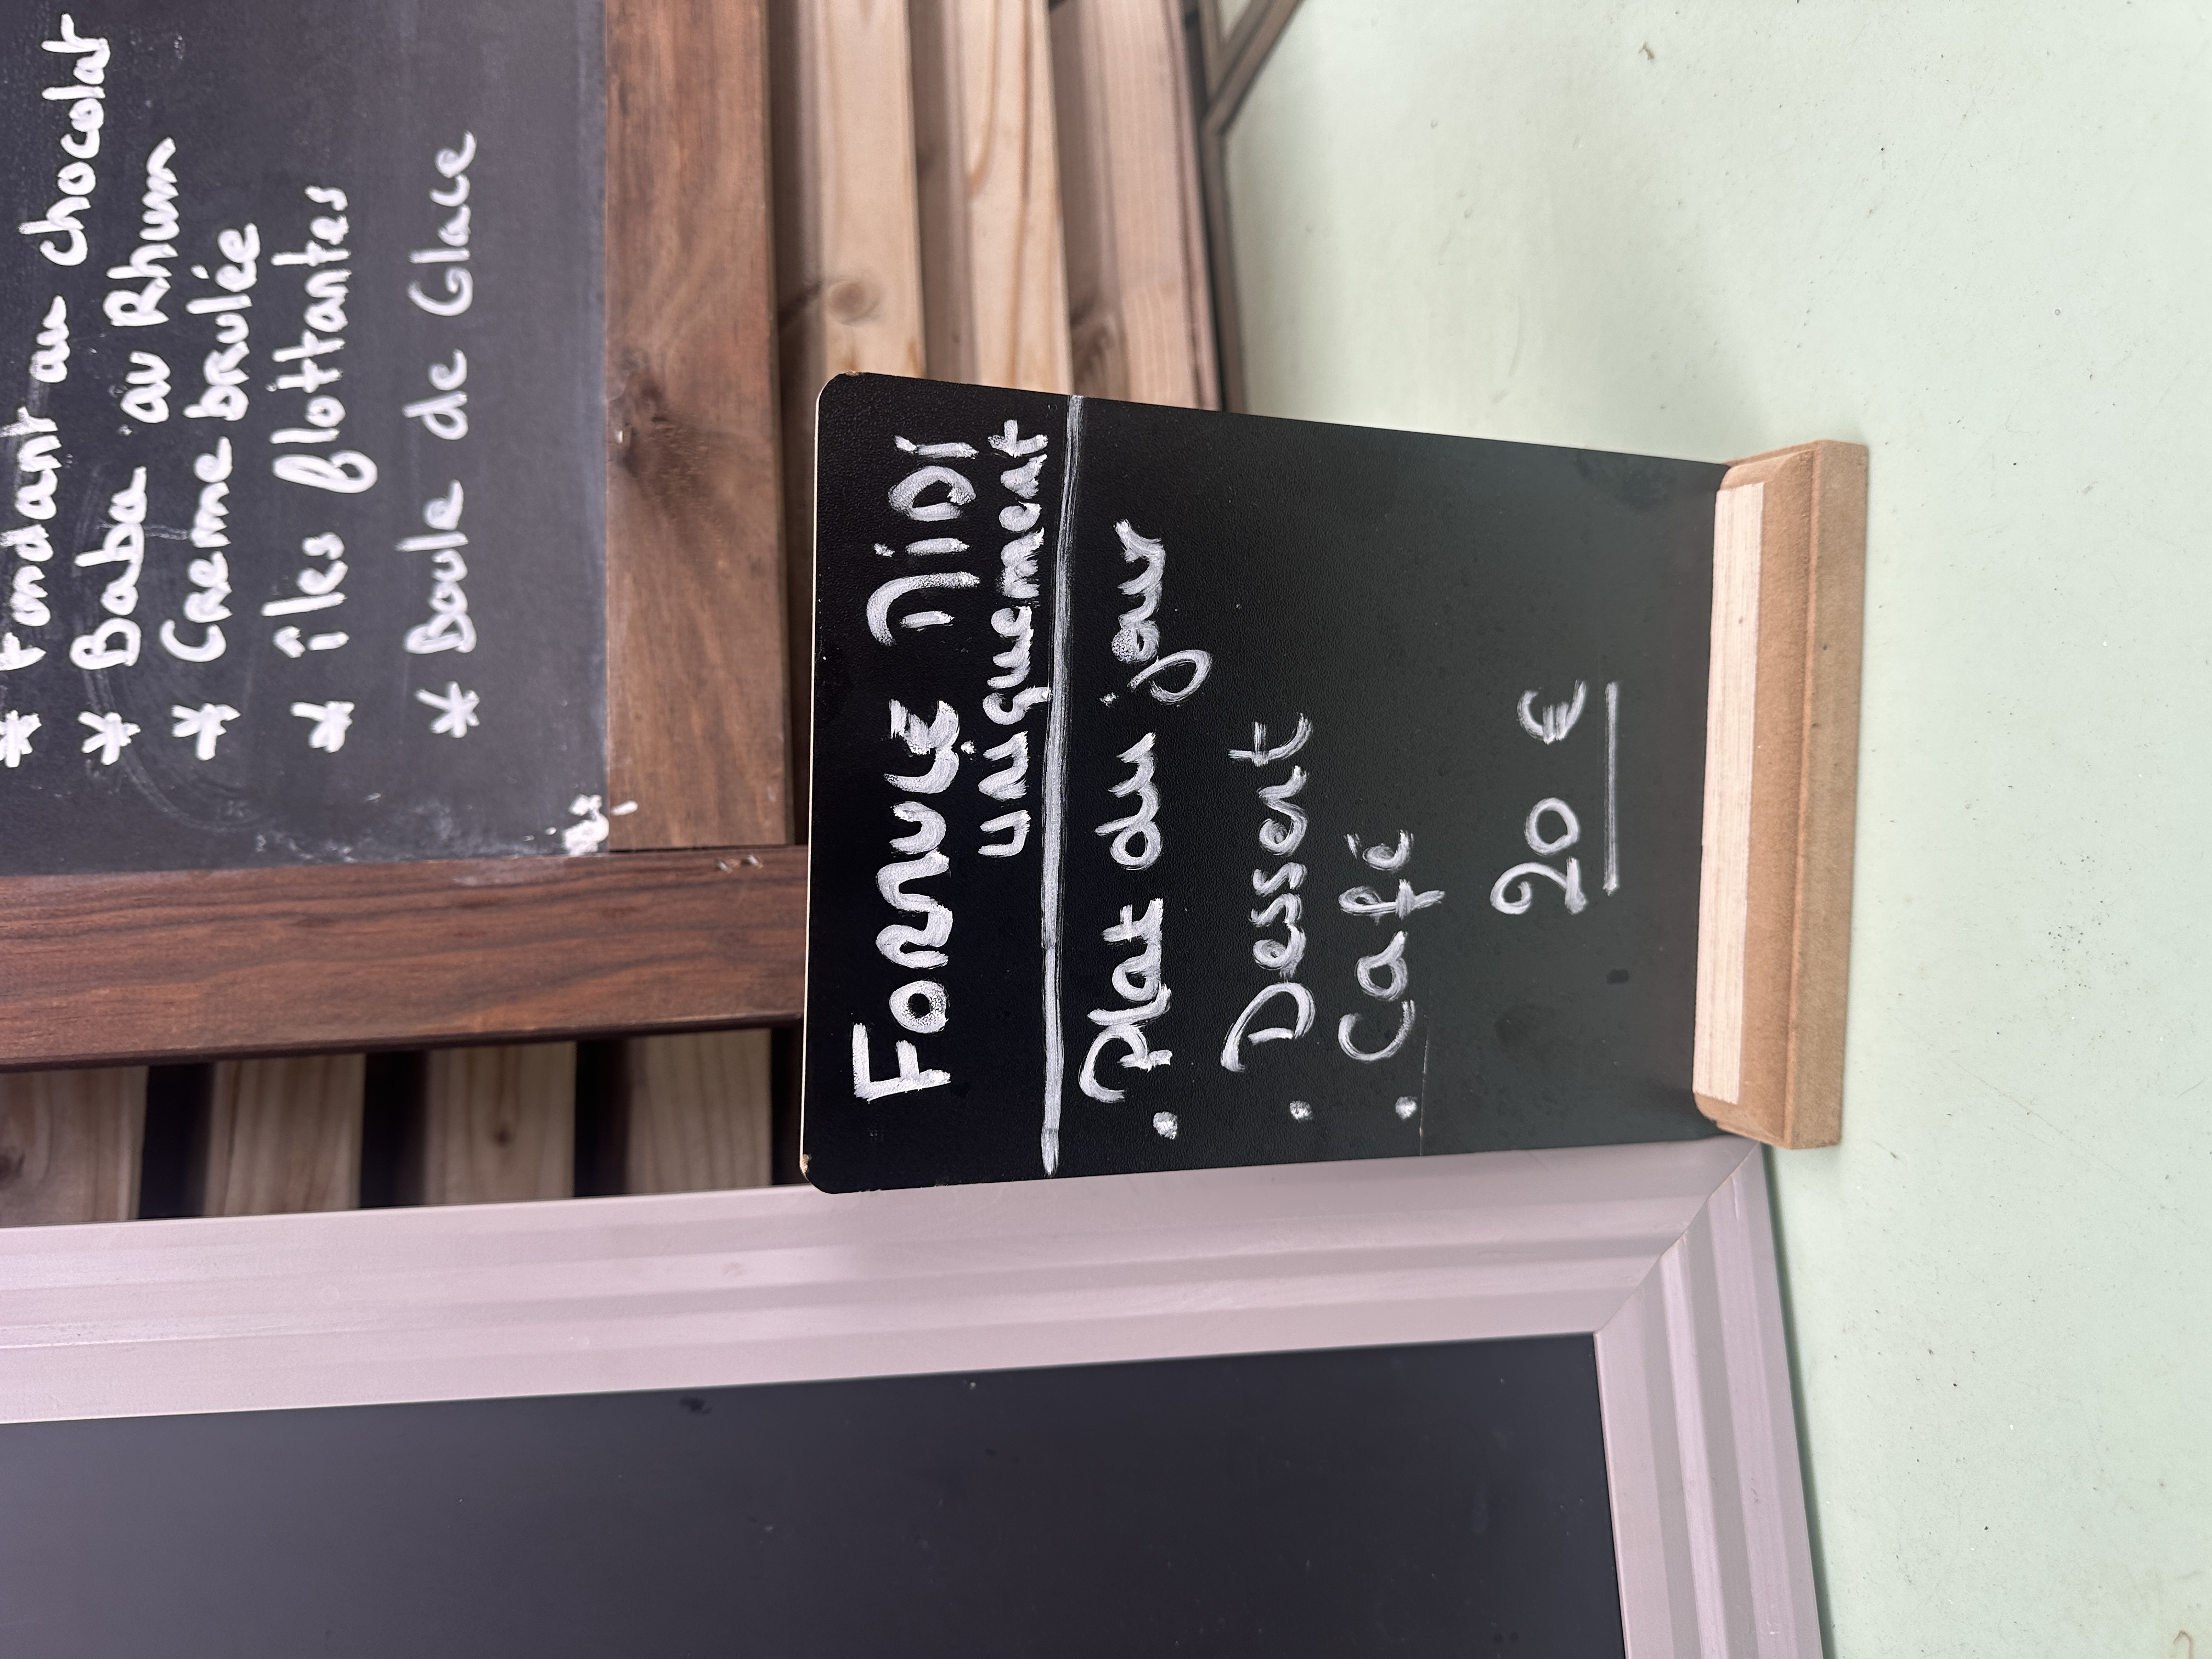 * Fondant au chocolat
* Baba au Rhum
* Creme brulée
* îles flottantes
* Boule de Glace
FORMULE MIDI
uniquement
• Plat du jour
• Dessert
• Café
20 €